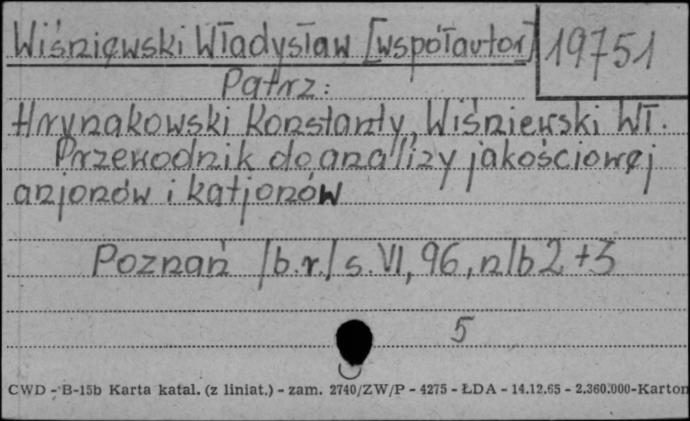 Wiśniewski Władysław [współautor]
19751
Patrz:
Hrynakowski Konstanty, Wiśniewski Wł.
Przewodnik do analizy jakościowej
anjonów i katjonów
Poznań /b.r./ s. VI, 96, nlb 2 + 3
5
CWD - B-15b Karta katal. (z liniat.) - zam. 2740/ZW/P - 4275 - ŁDA - 14.12.65 - 2.360.000-Karton